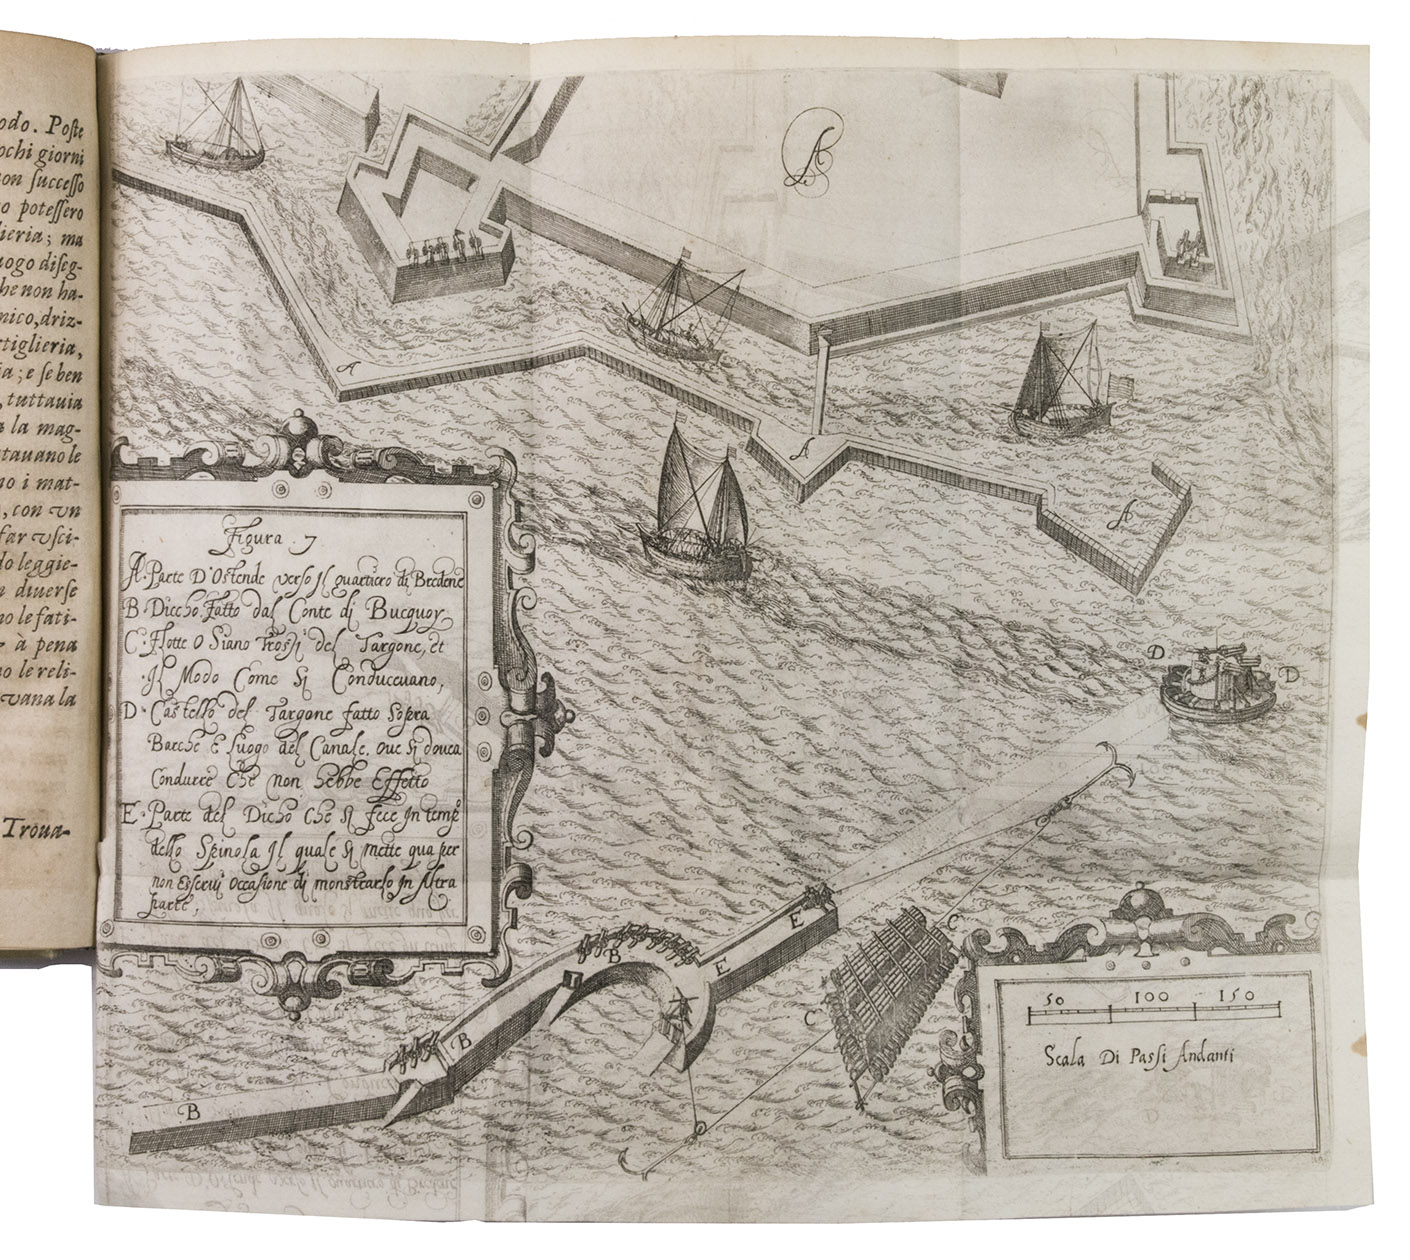 odo. Poste
ochi giorni
non successo
o potessero
lieria; ma
uogo diseg-
he non ha-
nico, driz-
tiglieria,
ia; e se ben
, tuttauia
a la mag-
tauano le
no i mat-
, con vn
far vsci-
do leggie-
n diuerse
no le fati-
à pena
no le reli-
vana la
Troua-
A
A
A
A
Figura 7
A. Parte D'Ostende verso Il quartiero di Bredene
B. Diccho fatto dal Conte di Bucquoy
C. Flotte O Siano Trossi del Targone, et
Il Modo Come Si Conduceuano,
D. Castello del Targone fatto Sopra
Barche E luogo del Canale. Oue Si doucea
Condurre Che non hebbe Effetto
E. Parte del Dicho Che Si fece In temp
dello Spinola Il quale Si mette qua per
non Esserui Occasione di monstrarlo In Altra
parte,
D
D
E
E
B
B
B
C
C
50 100 150
Scala Di Passi Andanti